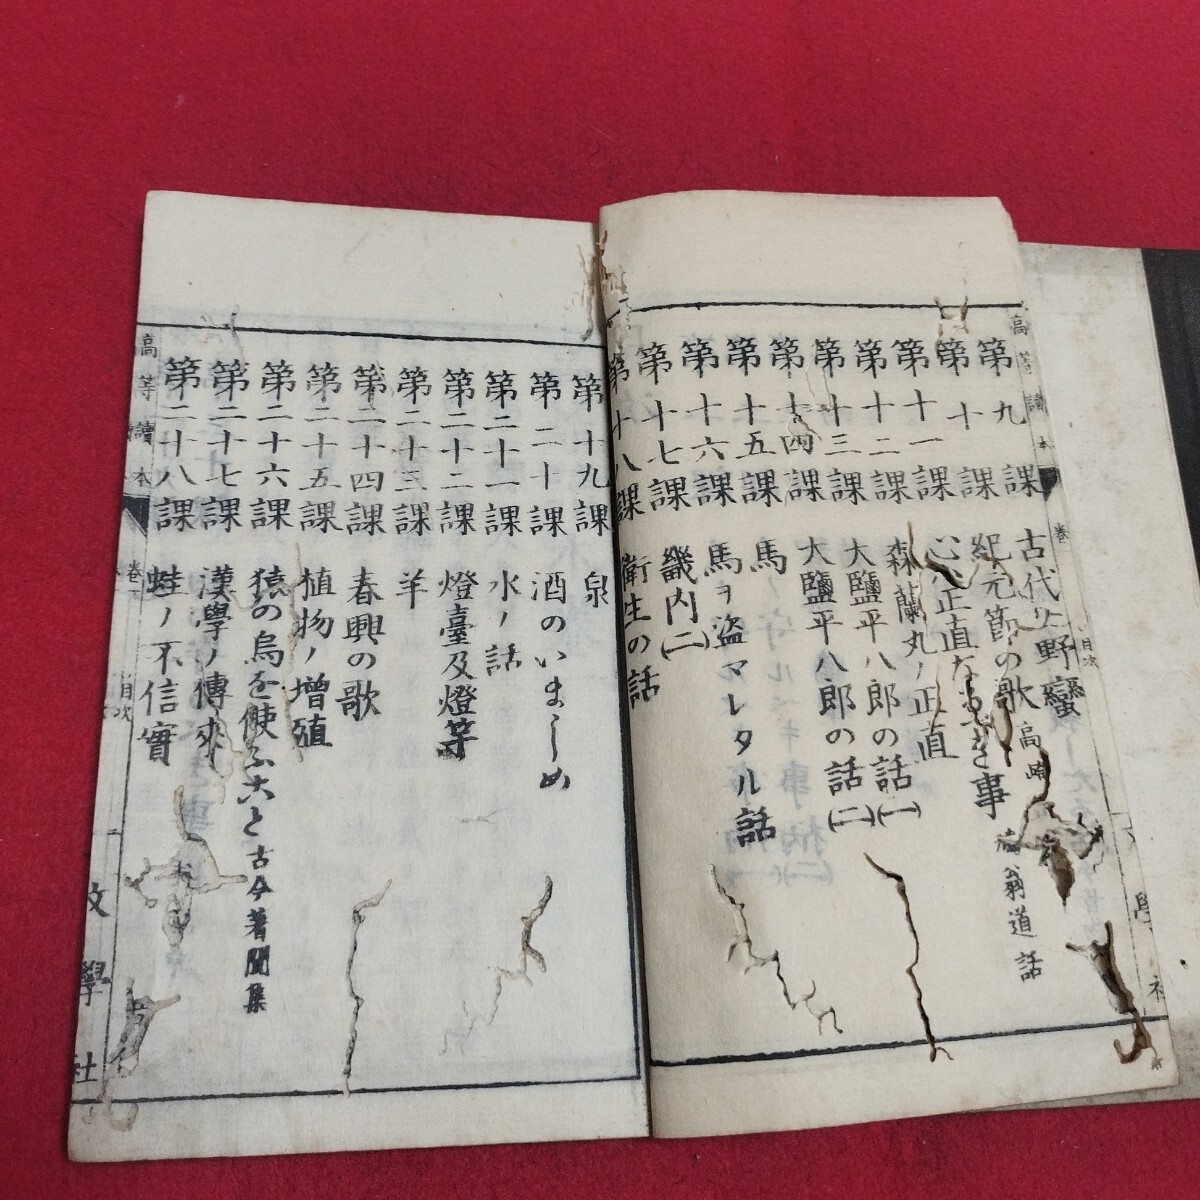 第九課 古代ノ野蠻
第十課 紀元節の歌 高崎
第十一課 心ノ正直なるべき事 翁道話
第十二課 森蘭丸ノ正直
第十三課 大鹽平八郎の話(一)
第十四課 大鹽平八郎の話(二)
第十五課 馬
第十六課 馬ヲ盜マレタル話
第十七課 畿内(二)
第十八課 衛生の話
高等讀本 卷 目次 文學社
第十九課 泉
第二十課 酒のいましめ
第二十一課 水ノ話
第二十二課 燈臺及燈竿
第二十三課 羊
第二十四課 春興の歌
第二十五課 植物ノ增殖
第二十六課 猿の烏を使ふこと 古今著聞集
第二十七課 漢學ノ傳來
第二十八課 蛙ノ不信實
高等讀本 卷 目次 文學社